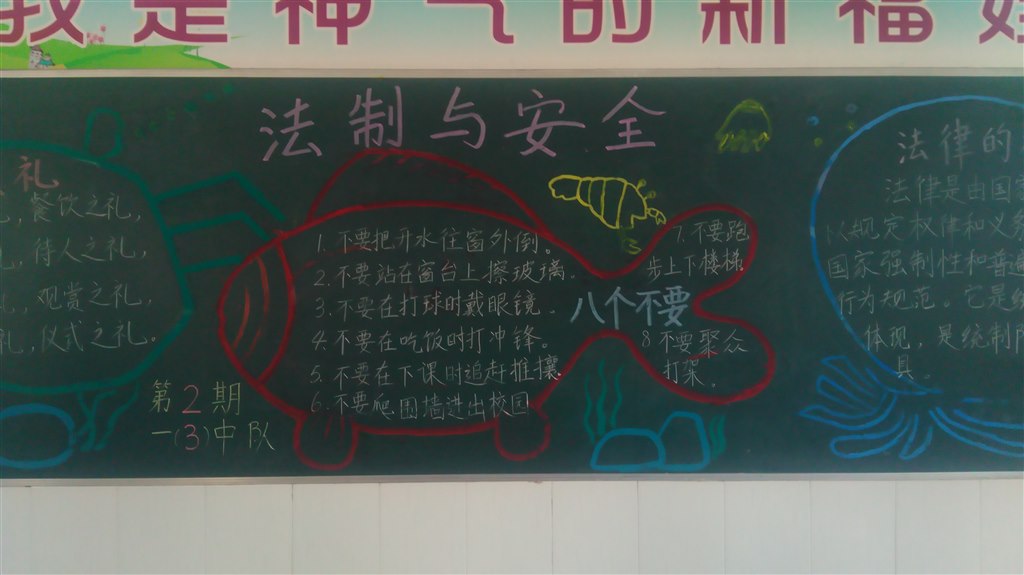 我是神气的新福娃
法制与安全
礼
餐饮之礼,
待人之礼,
观赏之礼,
礼,仪式之礼。
第2期
一(3)中队
1.不要把开水往窗外倒。
2.不要站在窗台上擦玻璃.
3.不要在打球时戴眼镜.
4.不要在吃饭时打冲锋。
5.不要在下课时追赶推攘.
6.不要爬围墙进出校园
八个不要
7.不要跑
步上下楼梯
8不要聚众
打架。
法律的
法律是由国
以规定权律和义务
国家强制性和普遍
行为规范。它是统
体现,是统制阶
具.